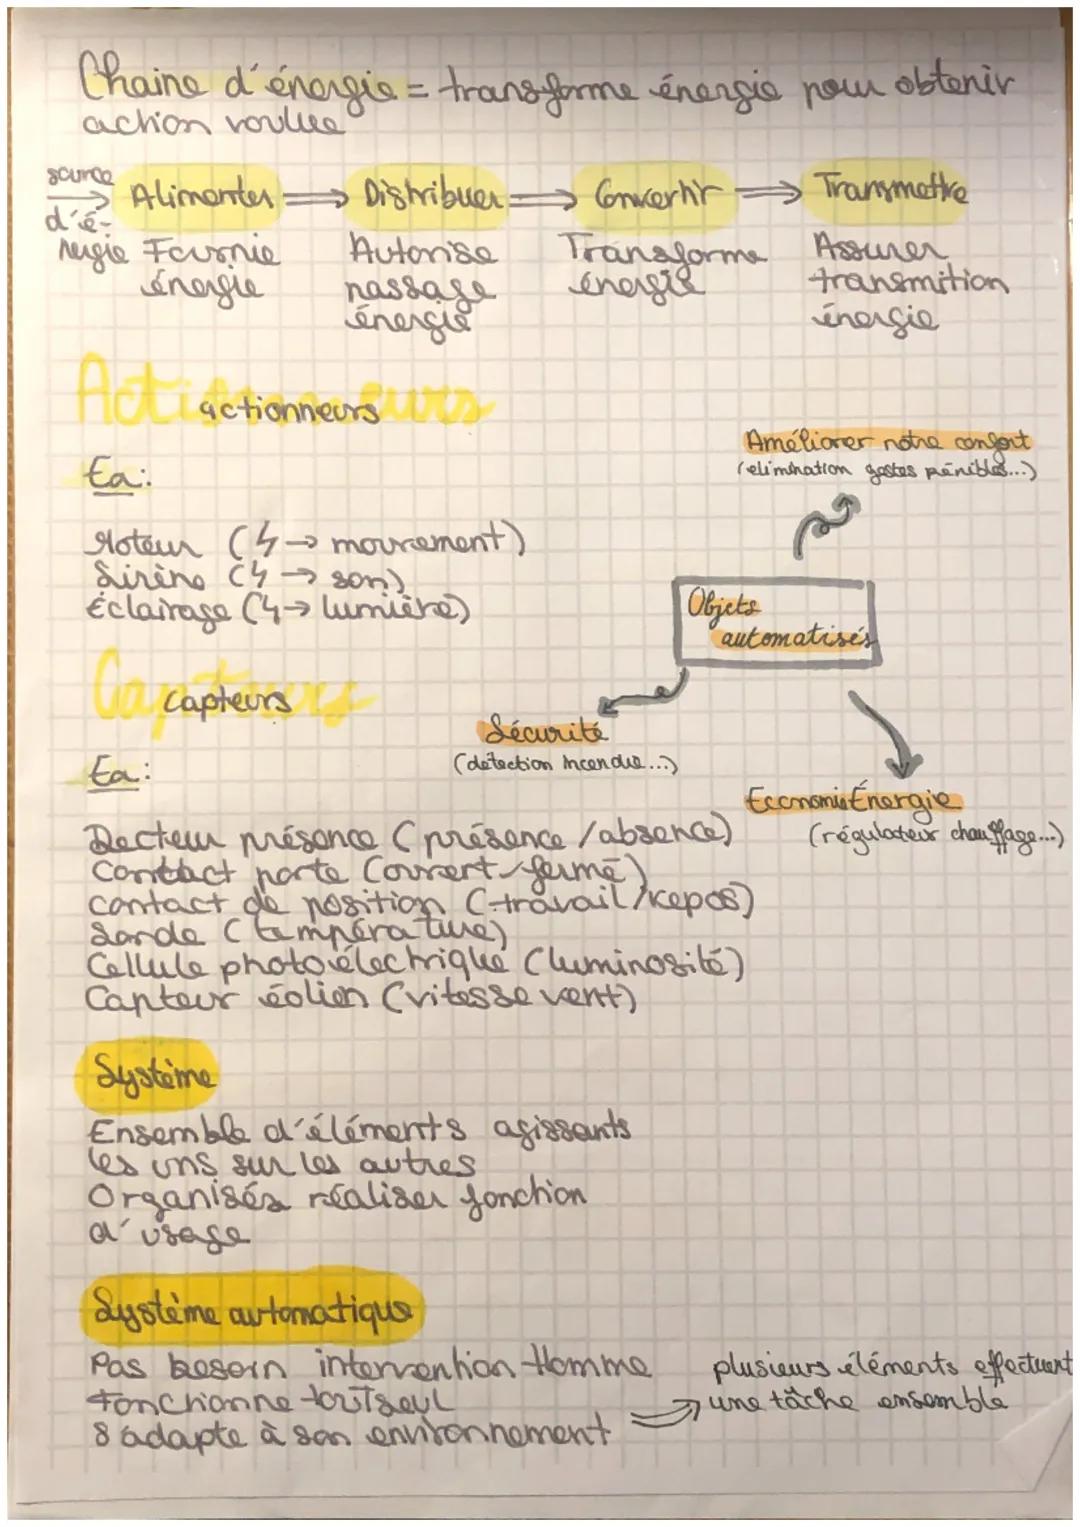 Chaine d'énergie = transforme énergie pour obtenir
action voulue
source
d'é-
nergie
Alimenter ⟹ Distribuer ⟹ Convertir ⟹ Transmettre
Fournie
énergie
Autorise
passage
énergie
Transforme
énergie
Assurer
transmition
énergie
Actionneurs
actionneurs
Ex:
Moteur (↯→ mouvement)
Sirène (↯→ son)
Éclairage (↯→ lumière)
Améliorer notre confort
(elimination gestes pénibles...)
Objets
automatisés
Sécurité
(détection incendie...)
EconomieÉnergie
(régulateur chauffage...)
Capteurs
capteurs
Ex:
Decteur présence (présence/absence)
Contact porte (ouvert/fermé)
contact de position (travail/repos)
Sonde (température)
Cellule photoélectrique (luminosité)
Capteur éolien (vitesse vent)
Système
Ensemble d'éléments agissants
les uns sur les autres
Organisés réaliser fonction
d'usage
Système automatique
Pas besoin intervention Homme
Fonctionne toutseul
s'adapte à son environnement
plusieurs éléments effectuent
une tâche ensemble